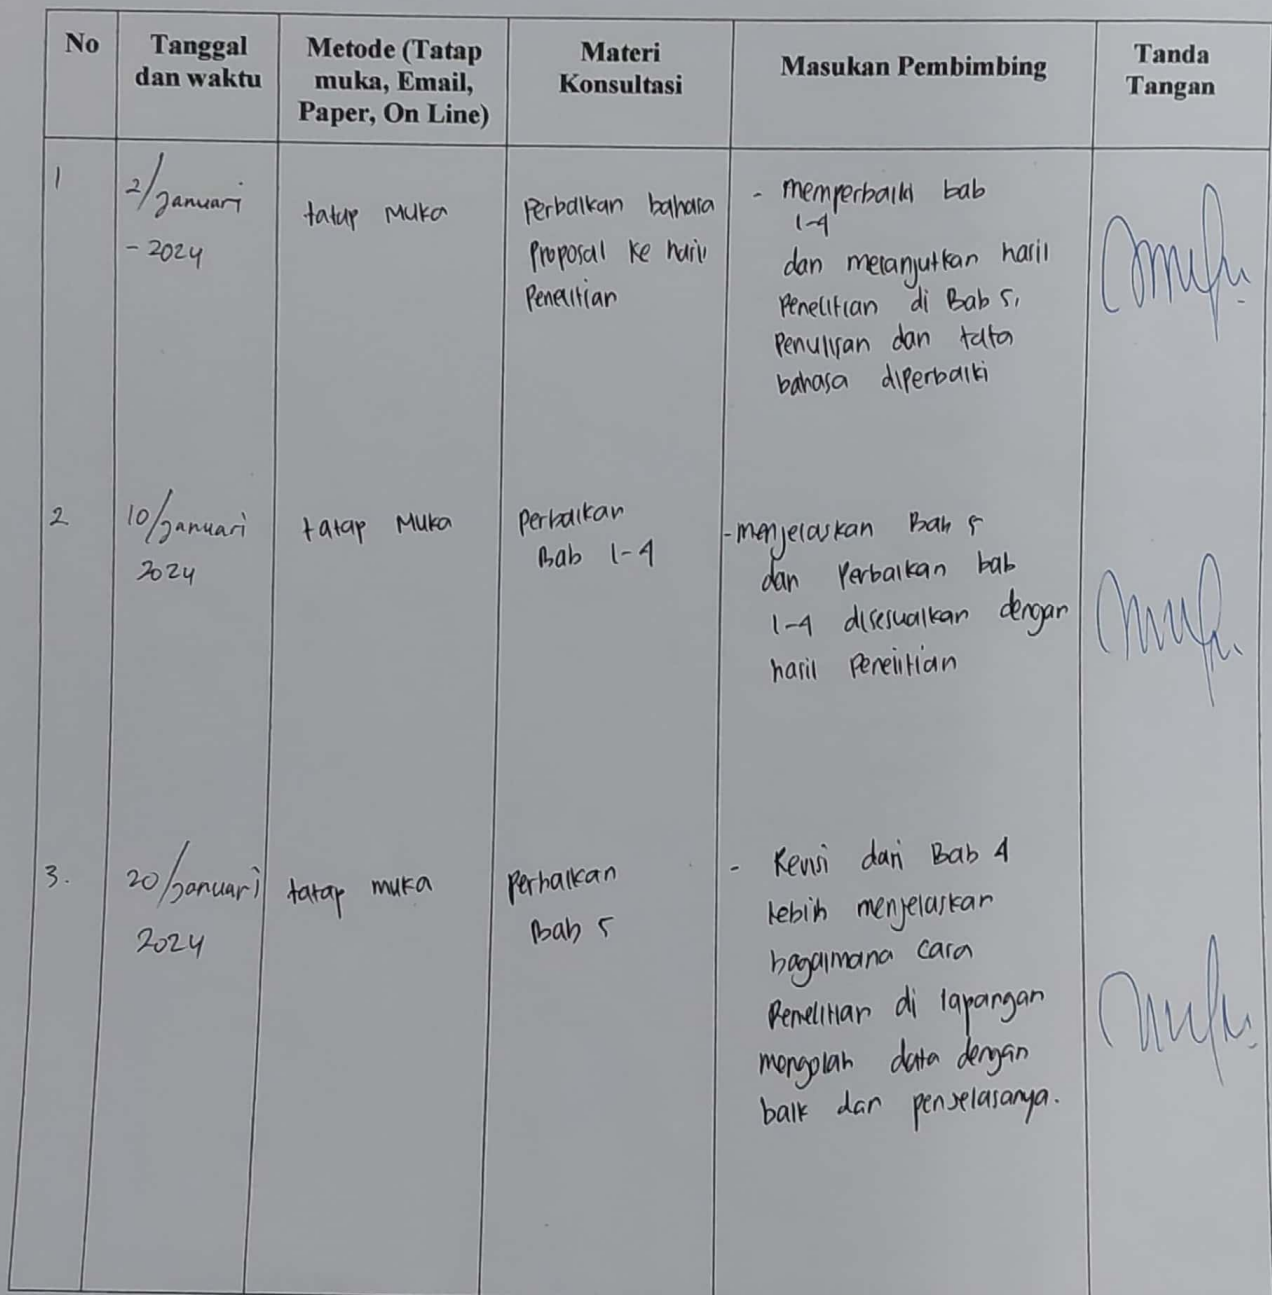 No
Tanggal
dan waktu
Metode (Tatap
muka, Email,
Paper, On Line)
Materi
Konsultasi
Masukan Pembimbing
Tanda
Tangan
1
2/Januari
- 2024
tatap Muka
Perbaikan bahasa
Proposal ke hasil
Penelitian
- memperbaiki bab
1-4
dan melanjutkan hasil
Penelitian di Bab 5,
Penulisan dan tata
bahasa diperbaiki
2
10/Januari
2024
tatap Muka
Perbaikan
Bab 1-4
- menjelaskan Bab 5
dan Perbaikan bab
1-4 disesuaikan dengan
hasil Penelitian
3.
20/Januari
2024
tatap muka
Perbaikan
Bab 5
- Revisi dari Bab 4
lebih menjelaskan
bagaimana cara
Penelitian di lapangan
mengolah data dengan
baik dan penjelasanya.